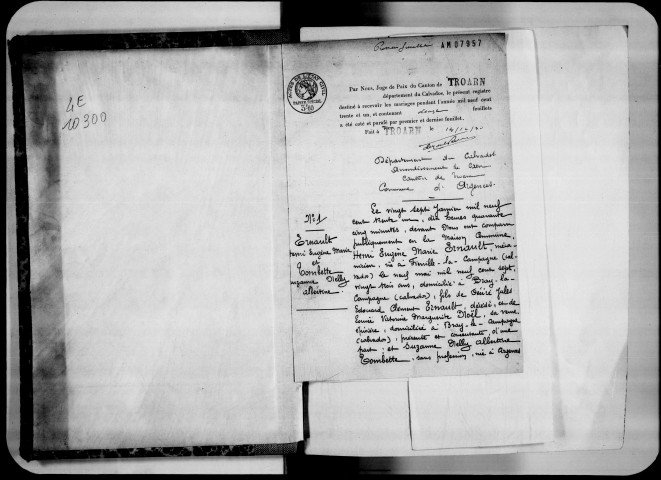 4E
10300
Premier feuillet AM 07957
TIMBRE DE L'ETAT CIVIL
PAPIER SPECIAL
Par Nous, Juge de Paix du Canton de TROARN
département du Calvados, le présent registre
destiné à recevoir les mariages pendant l'année mil neuf cent
trente et un, et contenant feuillets
a été coté et parafé par premier et dernier feuillet.
Fait à TROARN le
Département du Calvados
Arrondissement de Caen
Canton de Troarn
Commune d'Argences.
N° 1
Ernault
Henri Eugène Marie
et
Tombette
Suzanne Nelly
Albertine
Le vingt sept Janvier mil neuf
cent trente un, dix heures quarante
cinq minutes, devant Nous ont comparu
publiquement en la Maison Commune,
Henri Eugène Marie Ernault, méca-
nicien, né à Frénouville-la-Campagne (Cal-
vados) le neuf mai mil neuf cent sept,
vingt trois ans, domicilié à Bray-la-
Campagne (Calvados), fils de Désiré Jules
Edouard Clément Ernault, décédé, et de
Louise Victorine Marguerite Noël, sa veuve,
épicière, domiciliée à Bray-la-Campagne
(Calvados), présente et consentante, d'une
part; et Suzanne Nelly Albertine
Tombette, sans profession, née à Argences